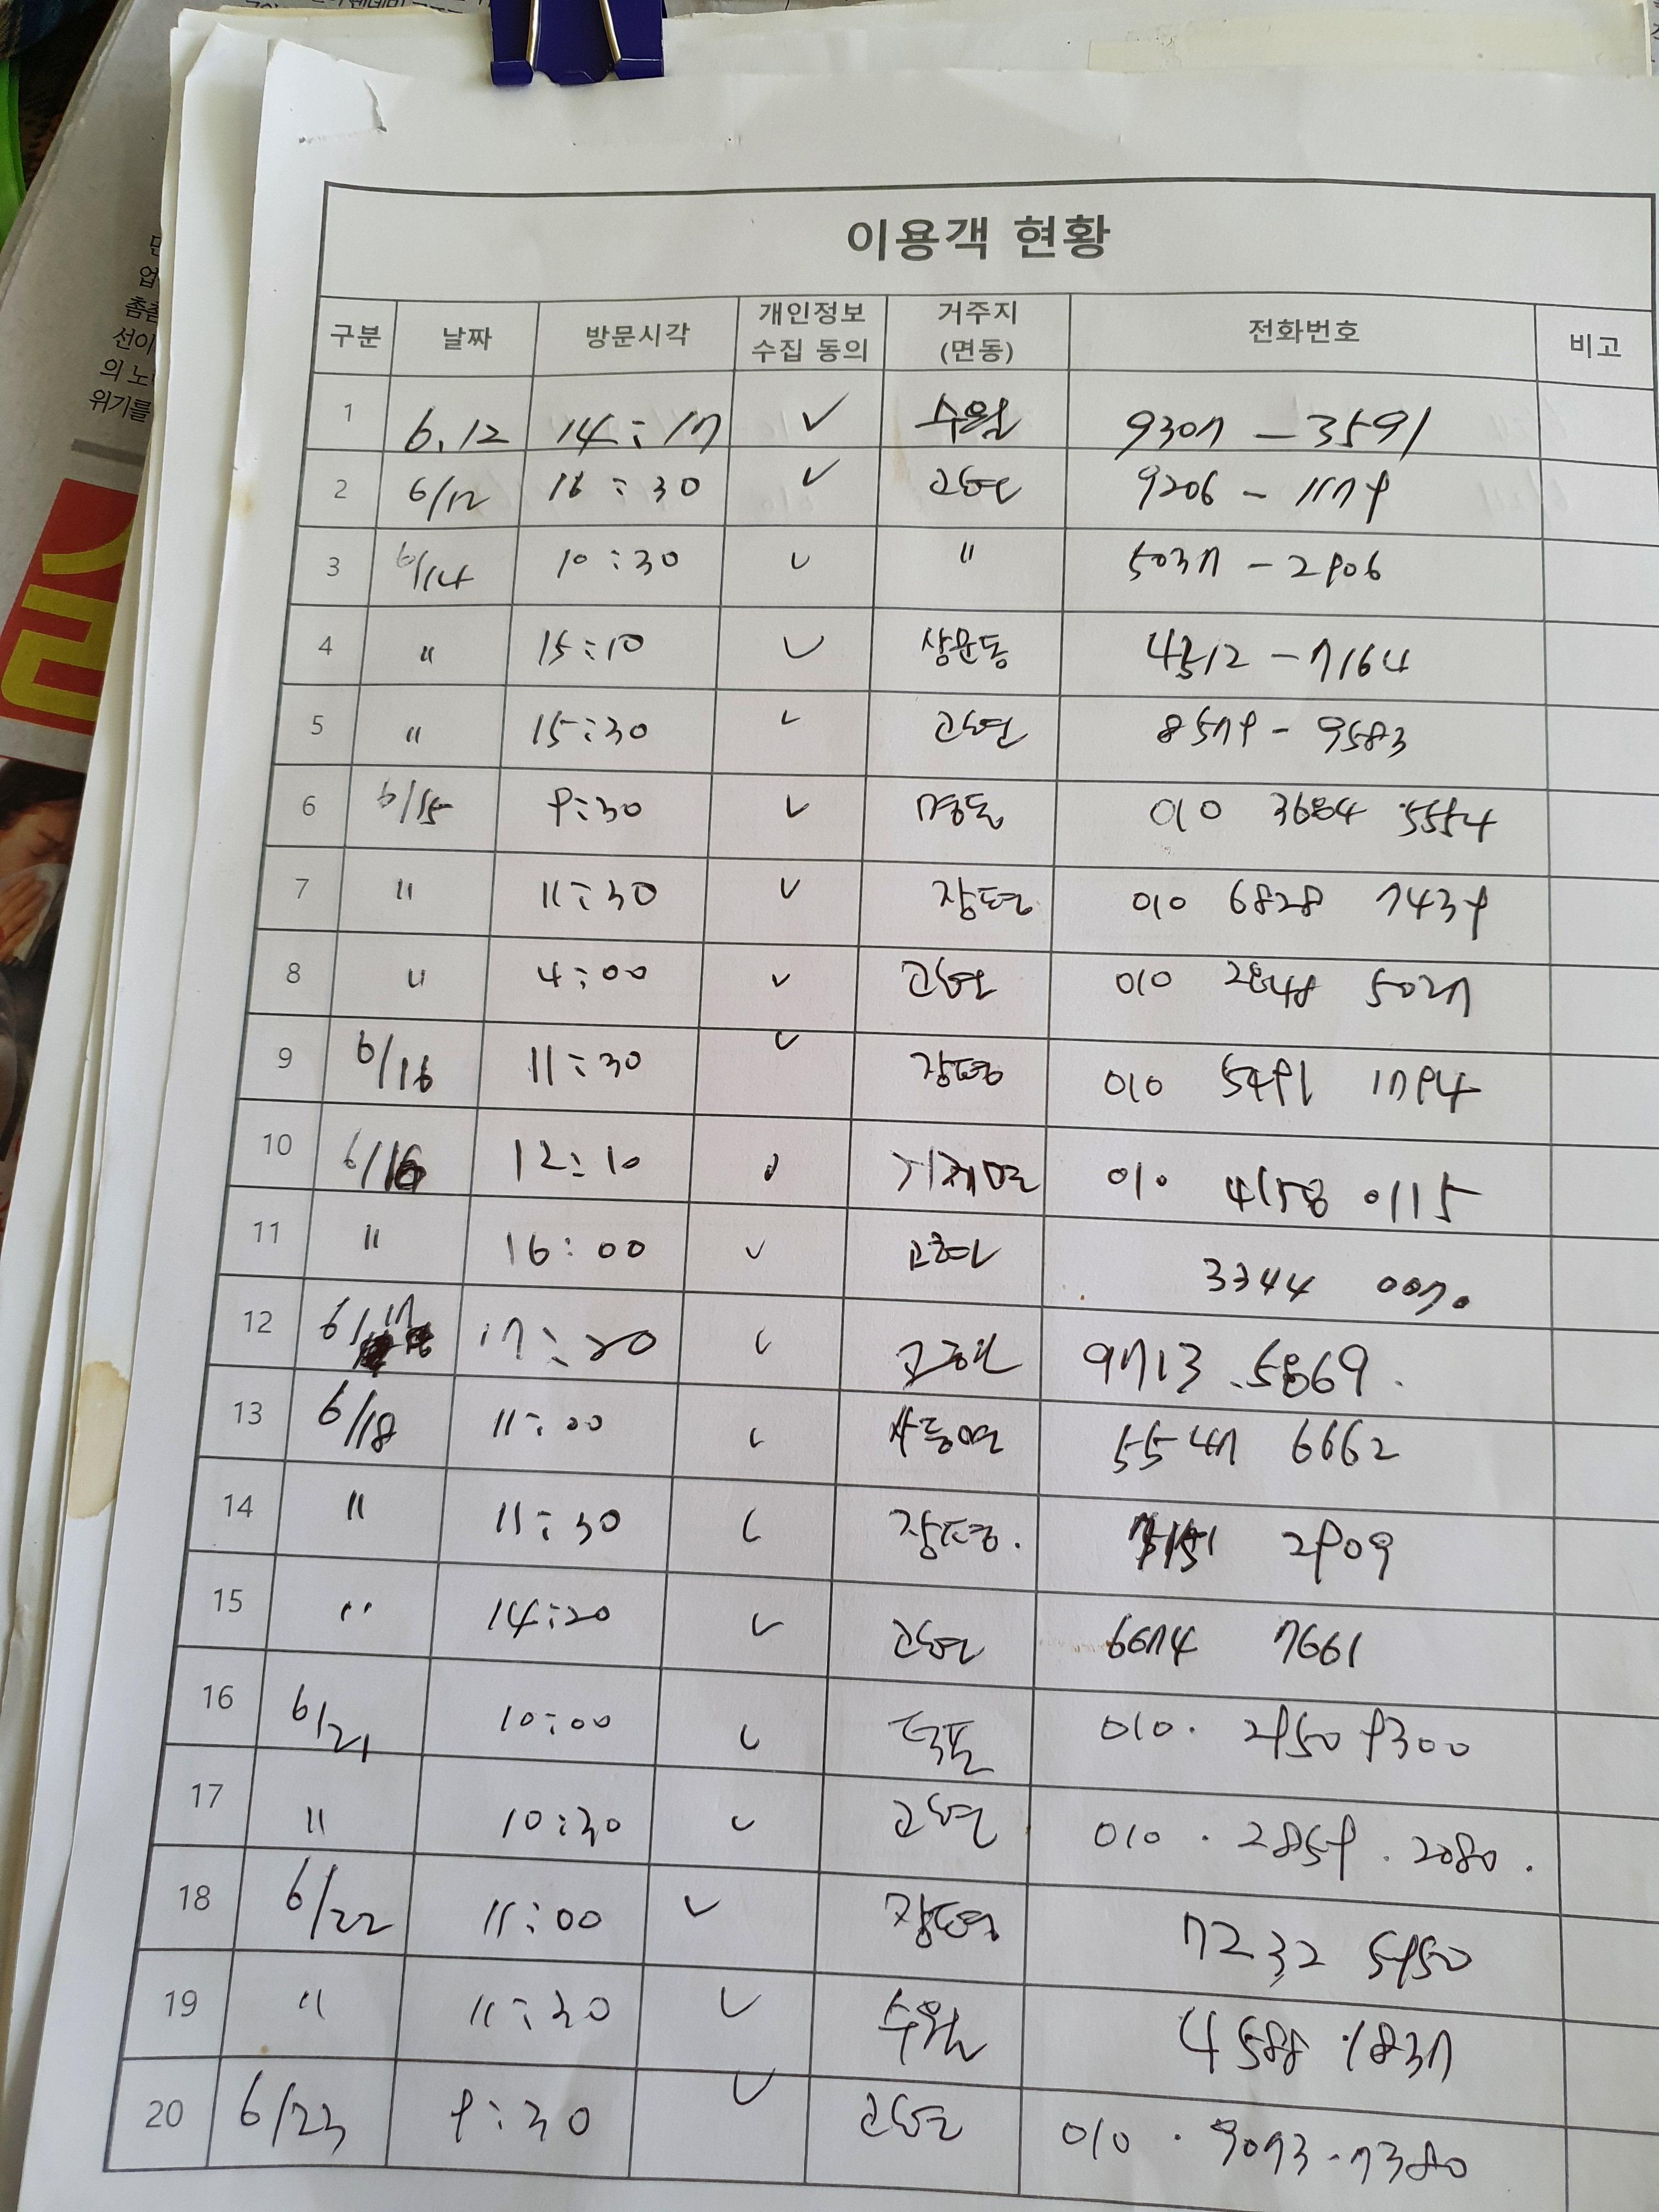 이용객 현황
구분 날짜 방문시각 개인정보 수집 동의 거주지 (면동) 전화번호 비고
1 6.12 14:17 ✓ 수월 9307-3591
2 6/12 16:30 ✓ 고현 9206-1179
3 6/14 10:30 ✓ " 5037-2906
4 " 15:10 ✓ 상문동 4312-7164
5 " 15:30 ✓ 고현 8579-9583
6 6/15 9:30 ✓ 명동 010 3684 5554
7 " 11:30 ✓ 장평 010 6828 7439
8 " 4:00 ✓ 고현 010 5027
9 6/16 11:30 ✓ 장평 010 5491 1794
10 6/16 12:10 ✓ 거제면 010 4158 0115
11 " 16:00 ✓ 고현 3344 0070
12 6/17 17:20 ✓ 고현 9713.5869.
13 6/18 11:00 ✓ 사등면 5547 6662
14 " 11:30 ✓ 장평. 2909
15 " 14:20 ✓ 고현 6674 7661
16 6/21 10:00 ✓ 덕포 010. 2950 9300
17 " 10:30 ✓ 고현 010.2859.2080.
18 6/22 11:00 ✓ 장평 7232 5950
19 " 11:30 ✓ 수월 4588 1837
20 6/23 9:30 ✓ 고현 010.9073-7380
업
춤춤
선이
의 노
위기를